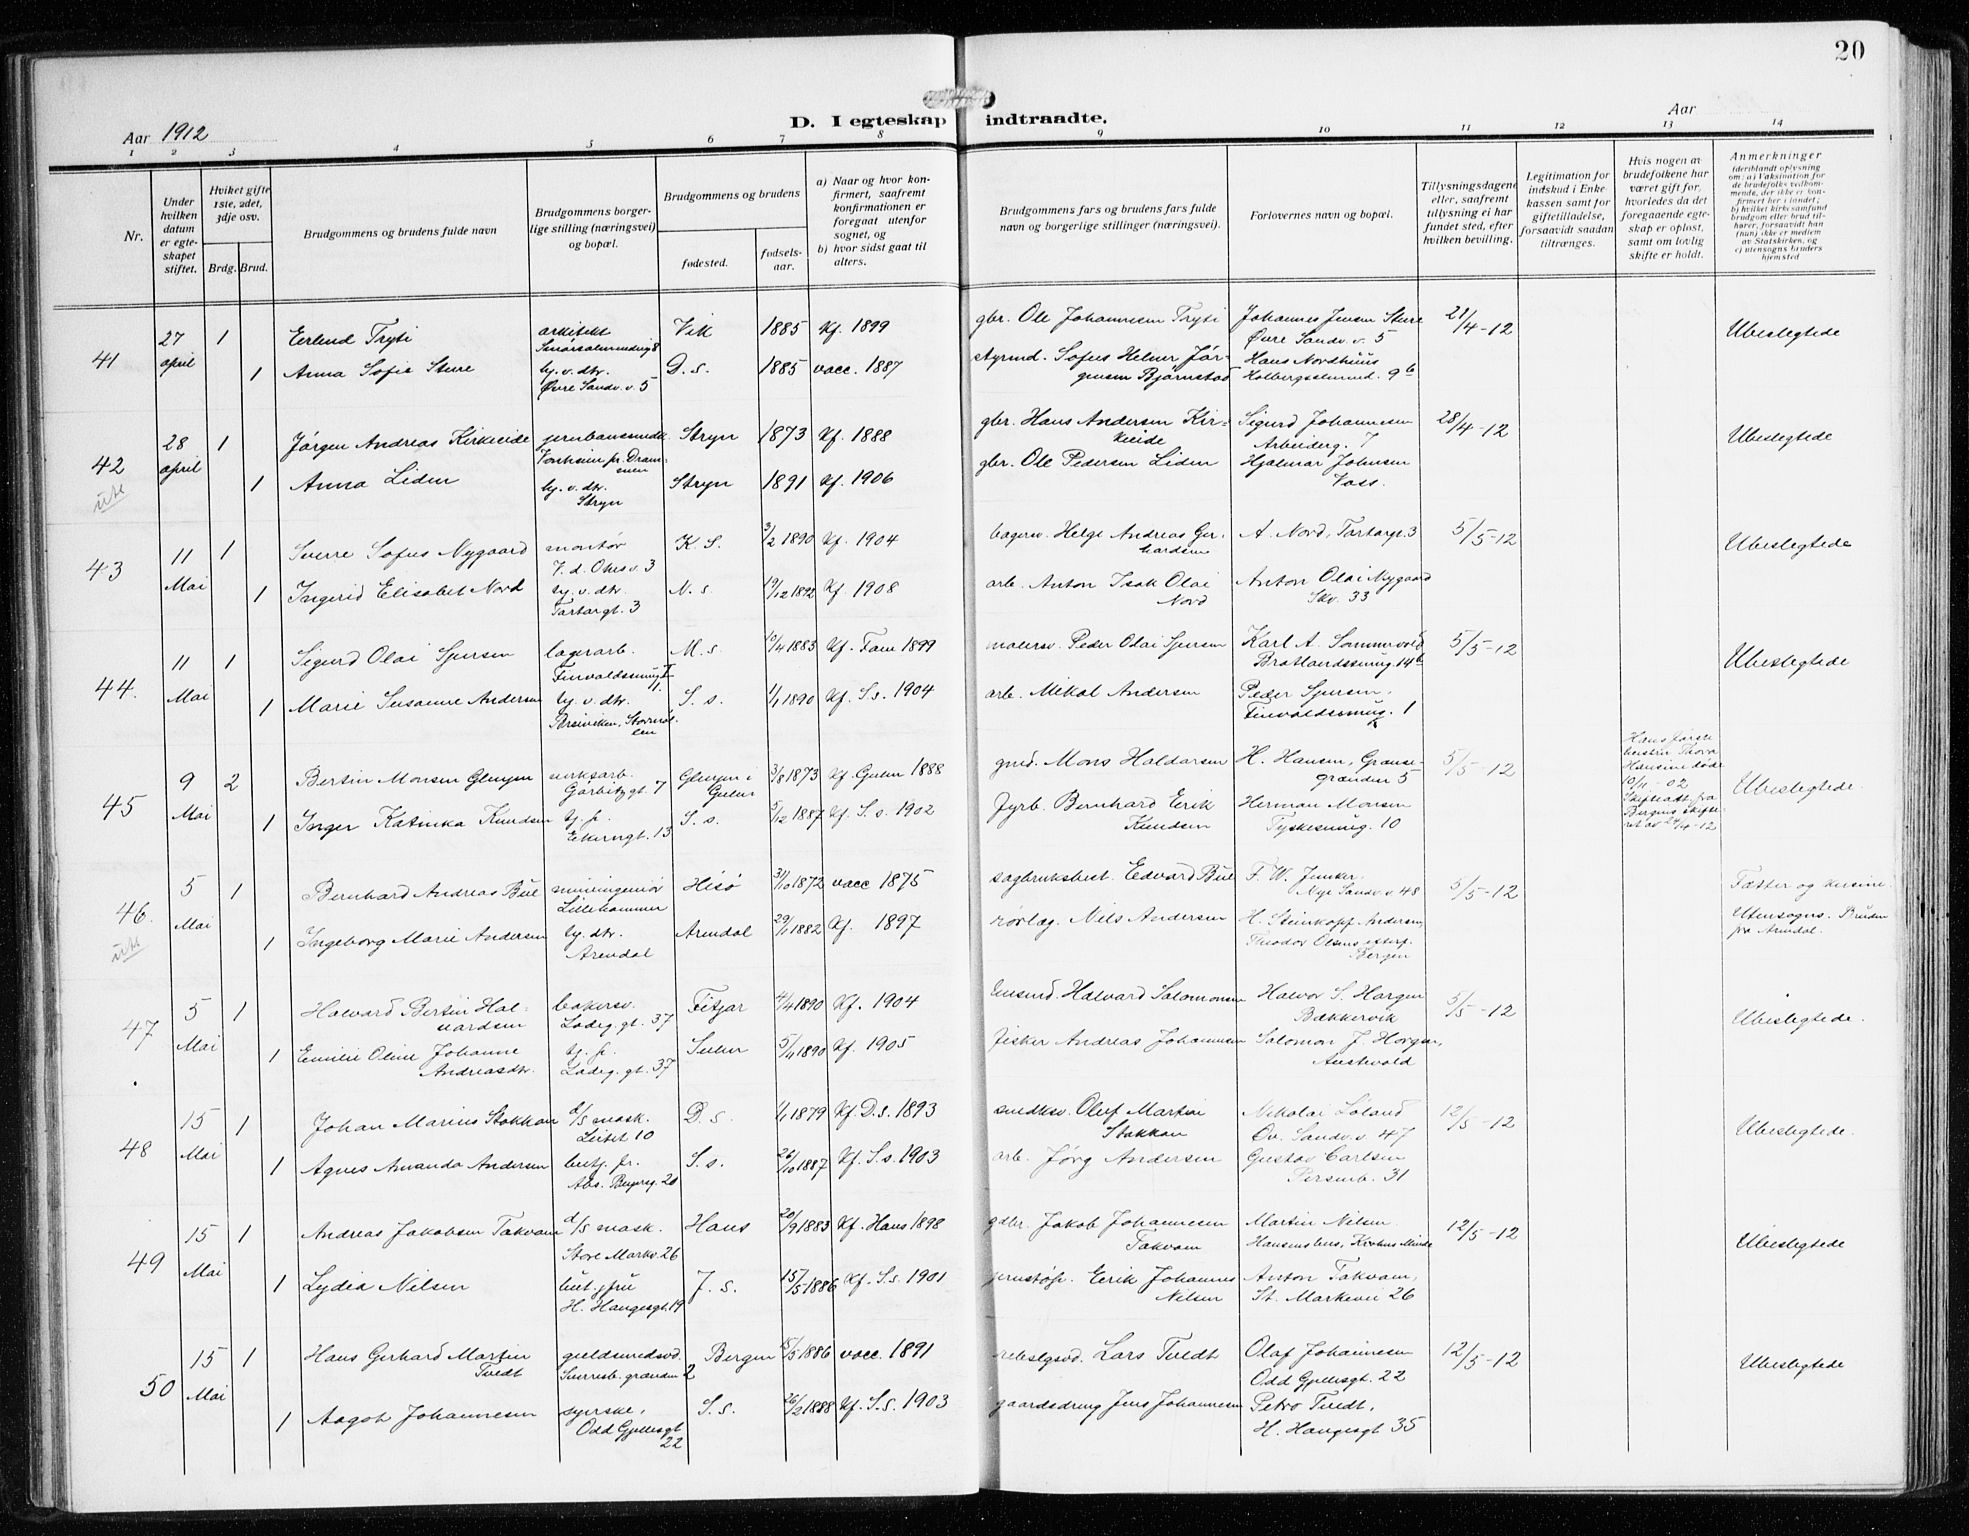 20
Aar 1912
D. I egteskap indtraadte.
Aar
1 2 3 4 5 6 7 8 9 10 11 12 13 14
Nr.
Under hvilken datum er egteskapet stiftet.
Hvilket gifte 1ste, 2det, 3dje osv.
Brdg. Brud.
Brudgommens og brudens fulde navn
Brudgommens borgerlige stilling (næringsvei) og bopæl.
Brudgommens og brudens
fødested.
fødselsaar.
a) Naar og hvor konfirmert, saafremt konfirmationen er foregaat utenfor sognet, og
b) hvor sidst gaat til alters.
Brudgommens fars og brudens fars fulde navn og borgerlige stillinger (næringsvei).
Forlovernes navn og bopæl.
Tillysningsdagene eller, saafremt tillysning ei har fundet sted, efter hvilken bevilling.
Legitimation for indskud i Enkekassen samt for giftetilladelse, forsaavidt saadan tiltrænges.
Hvis nogen av brudefolkene har været gift før, hvorledes da det foregaaende egteskap er opløst, samt om lovlig skifte er holdt.
Anmerkninger (deriblandt oplysning om: a) Vaksination for de brudefolks vedkommende, der ikke er konfirmert her i landet; b) hvilket kirkesamfund brudgom eller brud tilhører, forsaavidt han (hun) ikke er medlem av Statskirken, og c) utensogns bruders hjemsted
41 27 april 1 Erlend Tryti arkitekt Vik 1885 Kf. 1899 gbr. Ole Johannesen Tryti Johannes Jensen Sture Øvre Sandv. v. 5 21/4-12 Ubeslegtede
1 Anna Sofie Sture ty. v. dtr. Øvre Sandv. v. 5 D. s. 1885 vacc. 1887 styrmd. Sofus Helmer Jørgensen Bjørnstad Hans Nordhuus Holbergsalmend. 9b
42 ute 28 april 1 Jørgen Andreas Kirkeide jernbanesmed Stryn 1873 Kf. 1888 gbr. Hans Andersen Kirkeide Sigurd Johannesen Arbeiderg. 7 28/4-12 Ubeslegtede
1 Anna Liden ty. v. dtr. Stryn Stryn 1891 Kf. 1906 gbr. Ole Pedersen Liden Hjalmar Johnsen Voss.
43 11 Mai 1 Sverre Sofus Nygaard montør V. d. Okesv. 3 K. S. 3/2 1890 Kf. 1904 bagersv. Helge Andreas Gerhardsen A. Nord, Tartargt. 3 5/5-12 Ubeslegtede
1 Ingerid Elisabet Nord ty. v. dtr. Tartargt. 3 N. s 19/12 1892 Kf. 1908 arb. Anton Isak Olai Nord Anton Olai Nygaard Skv. 33
44. 11 Mai 1 Sigurd Olai Syversen lagerarb. M. s 10/4 1883 Kf. Fane 1899 malersv. Peder Olai Syversen Karl A. Sommervold Bratlandssmug. 14b 5/5-12 Ubeslegtede
1 Marie Susanne Andersen ty. v. dtr. S. s. 1/1 1890 Kf. S. s. 1904 arb. Mikal Andersen Peder Syversen, Finvoldssmug. 1
45 9 Mai 2 Bertin Monsen Glenjen verksarb. Gørbitzgt. 7 Glenjen i Gulen 3/8 1873 Kf. Gulen 1888 gmd. Mons Haldorsen H. Hansen, Grønsegrænden 5 5/5-12 Hans første hustru Thora Hansine døde 10/11-02 Skifteatt. fra Bergens skifteret av 24/4-12 Ubeslegtede.
1 Inger Katinka Knudsen tj. p. Ekerengt. 13 S. s. 5/12 1887 Kf. S. s. 1902 fyrb. Bernhard Erik Knudsen Herman Monsen Tyskesmug. 10
46. ute 5 Mai 1 Bernhard Andreas Bue mineingeniør Lillehammer Hisø 31/10 1872 vacc 1875 sagbruksbest. Edvard Bue F. W. Junker. Nye Sandv. v 48 5/5-12 Fætter og kusine. Utensogns. Bruden fra Arendal.
1 Ingeborg Marie Andersen ty. dtr. Arendal Arendal 29/1 1882 Kf. 1897 rørlæg. Nils Andersen H. Steinkopf-Andersen, Theodor Olsens efterf. Bergen
47 5 Mai 1 Halvard Bertin Halvardsen bakersv. Ladeg. gt. 37 Fitjar 4/4 1890 Kf. 1904 Halvard Salomonsen Halvor S. Horgen Bækkervik 5/5-12 Ubeslegtede.
1 Emilie Oline Johanne Andreasdtr. tj. p. Ladeg. gt. 37 Sulen 5/4 1890 Kf. 1905 fisker Andreas Johannesen Salomon J. Horgen, Austevold
48 15 Mai 1 Johan Marius Stokkan d/s mask. Leitet 10 D. s. 1/1 1879 Kf. D. s. 1893 smedsv. Oluf Martin Stokkan Nikolai Loland Øv. Sandv. v. 47 12/5-12 Ubeslegtede.
1 Agnes Amanda Andersen butj. fr. Abs. Beyersg. 20 S. s. 26/10 1887 Kf. S. s. 1903 arb. Jørg Andersen Gustav Carlsen Persenb. 31
49 15 Mai 1 Andreas Jakobsen Takvam d/s mask. Store Markv. 26 Haus 20/9 1883 Kf. Haus 1898 gdbr. Jakob Johannesen Takvam Martin Nilsen Hansenshus, Krohns Minde 12/5-12 Ubeslegtede
1 Lydia Nilsen but. jfru H. Haugesgt. 19 J. s. 15/5 1886 Kf. S. s. 1901 jernstøp. Erik Johannes Nilsen Anton Takvam, St. Markevei 26
50 15 Mai 1 Hans Gerhard Martin Tvedt guldsmedsvd. Bergen 15/5 1886 vacc. 1891 rebslgsvd. Lars Tvedt Olaf Johannesen Odd Gjellesgt. 22 12/5-12 Ubeslegtede
1 Aagot Johannesen syerske, Odd Gjellesgt 22 S. s. 26/2 1888 Kf. S. s. 1903 gaardsdreng Jens Johannesen Petro Tvedt, H. Haugesgt 35